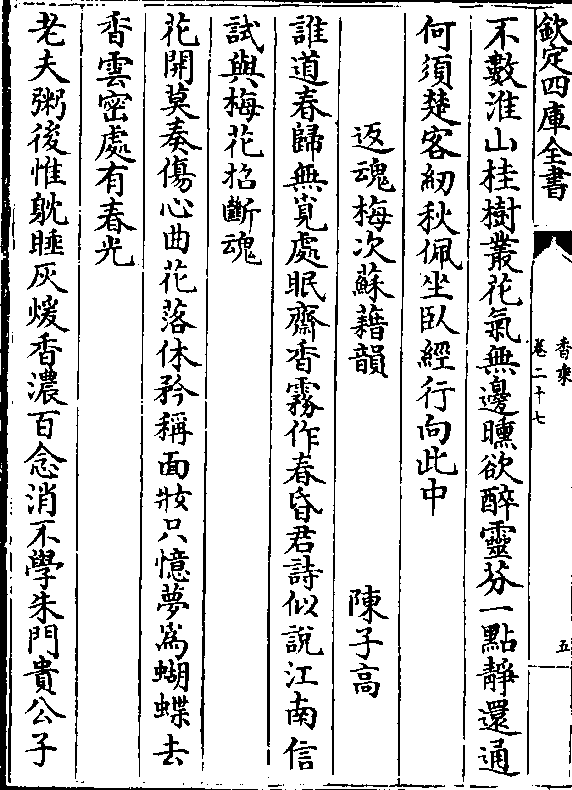 欽定四庫全書
香乘
卷二十七
五
不數淮山桂樹叢花氣無邊曛欲醉靈芬一點静還通
何須楚客紉秋佩坐卧經行向此中
返魂梅次蘇藉韻
陳子高
誰道春歸無覓處眠齋香霧作春昏君詩似說江南信
試與梅花招斷魂
花開莫奏傷心曲花落休矜稱面妝只憶夢為蝴蝶去
香雲密處有春光
老夫粥後惟躭睡灰煖香濃百念消不學朱門貴公子